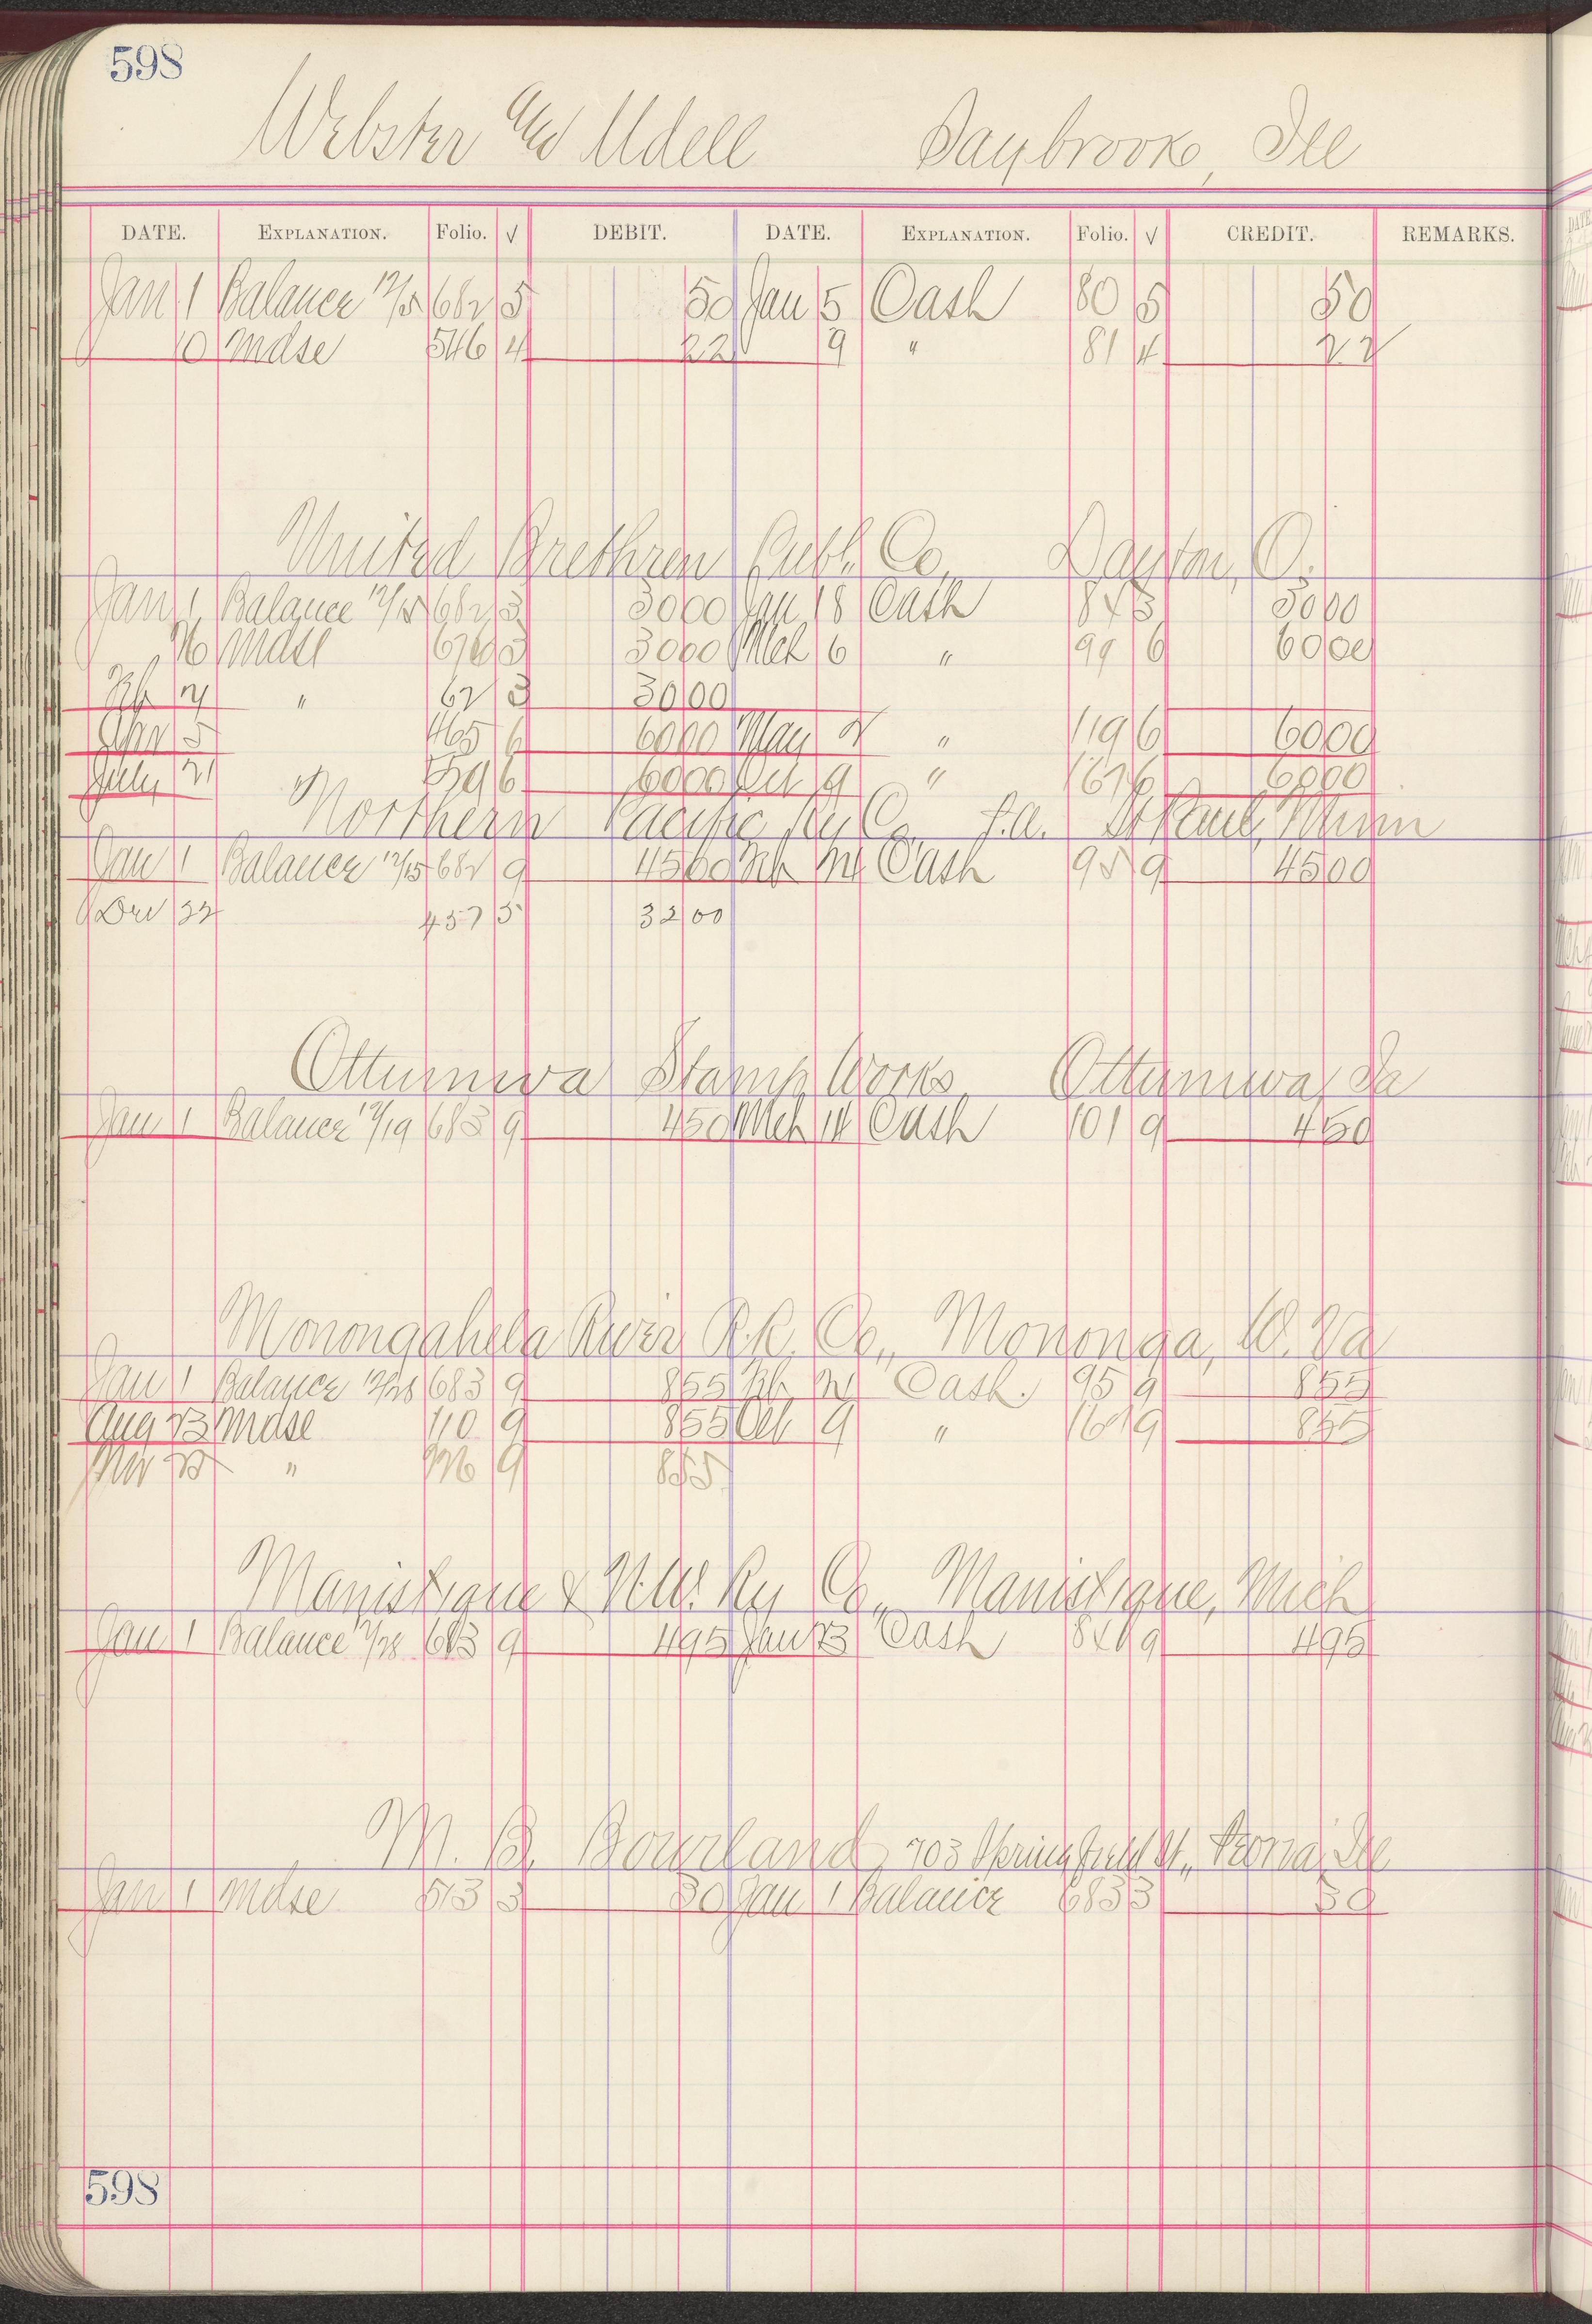 598
Webster and Udell Saybrook, Ill
DATE. EXPLANATION. Folio. √ DEBIT. DATE. EXPLANATION. Folio. √ CREDIT. REMARKS.
Jan 1 Balance 12/5 682 5 50 Jan 5 Cash 80 5 50
10 Mdse 546 4 22 9 " 81 4 22
United Brethren Publ. Co. Dayton, O.
Jan 1 Balance 682 3 3000 Jan 18 Cash 3000
16 Mdse 3 3000 Mch 6 " 99 6 6000
Feb " 3 3000
465 6 6000 May " 119 6 6000
July 21 " 6 6000 Oct 9 " 6 6000
Northern Pacific Ry Co. St Paul, Minn
Jan 1 Balance 12/15 682 9 4500 Feb Cash 95 9 4500
457 5 3200
Ottumwa Stamp Works, Ottumwa, Ia
Jan 1 Balance 12/19 683 9 450 Mch 14 Cash 101 9 450
Monongahela River R.R. Co., Mononga, W. Va
Jan 1 Balance 12/28 683 9 855 Feb Cash. 95 9 855
Aug 23 Mdse 110 9 855 Oct 9 " 161 9 855
" 9 855
Manistique & N.W. Ry Co., Manistique, Mich
Jan 1 Balance 12/28 683 9 495 Jan 23 Cash 9 495
M. B. Bourland, 703 Springfield St., Peoria, Ill
Jan 1 Mdse 513 3 50 Jan 1 Balance 683 3 50
598